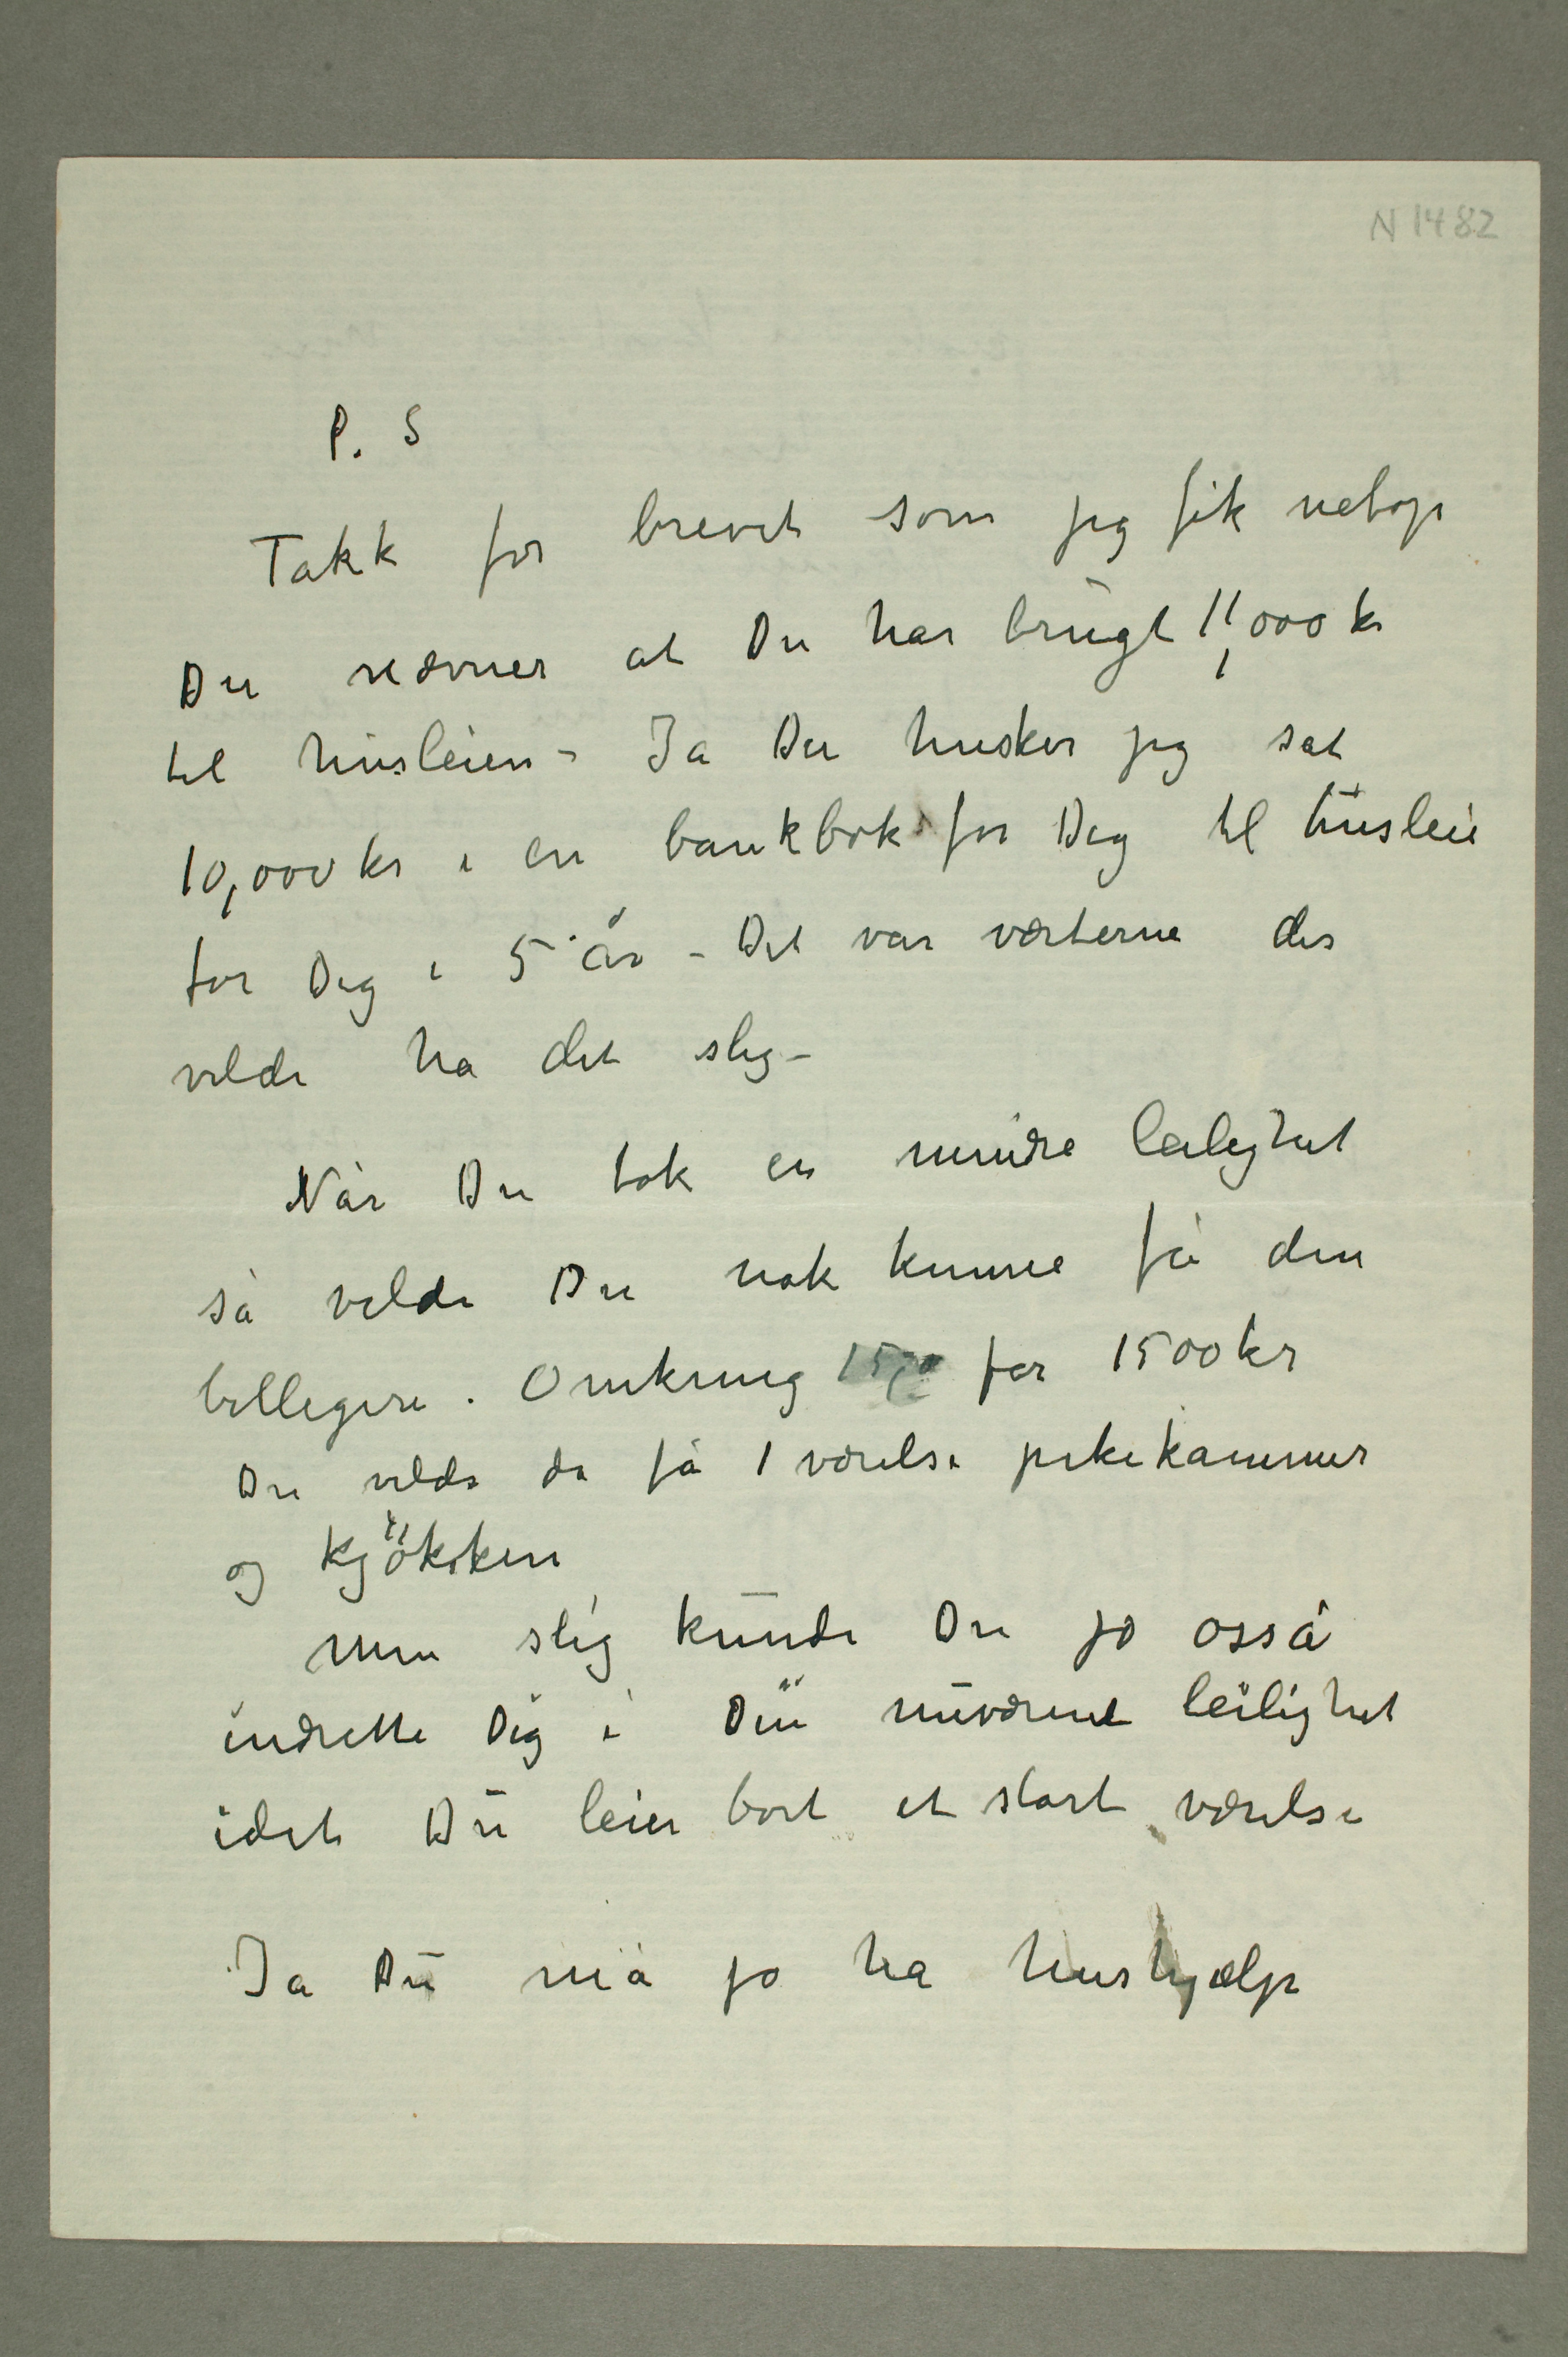 N 1482
P. S
Takk for brevet som jeg fik netop
Du nævner at Du har brugt 11,000 kr
til husleien – Ja Du husker jeg sat
10,000 kr i en bankbok for Dig til husleie
for Dig i 5 år – Det var værterne der
vilde ha det slig –
Når Du tok en mindre leilighet
så vilde Du nok kunne få den
billigere. Omkring for 1500 kr
Du vilde da få 1 værelse pikekammer
og kjökken
Men slig kunde Du jo osså
indrette Dig i Din nuværent leilighet
idet Du leier bort et stort værelse
Ja Du må jo ha hushjælp